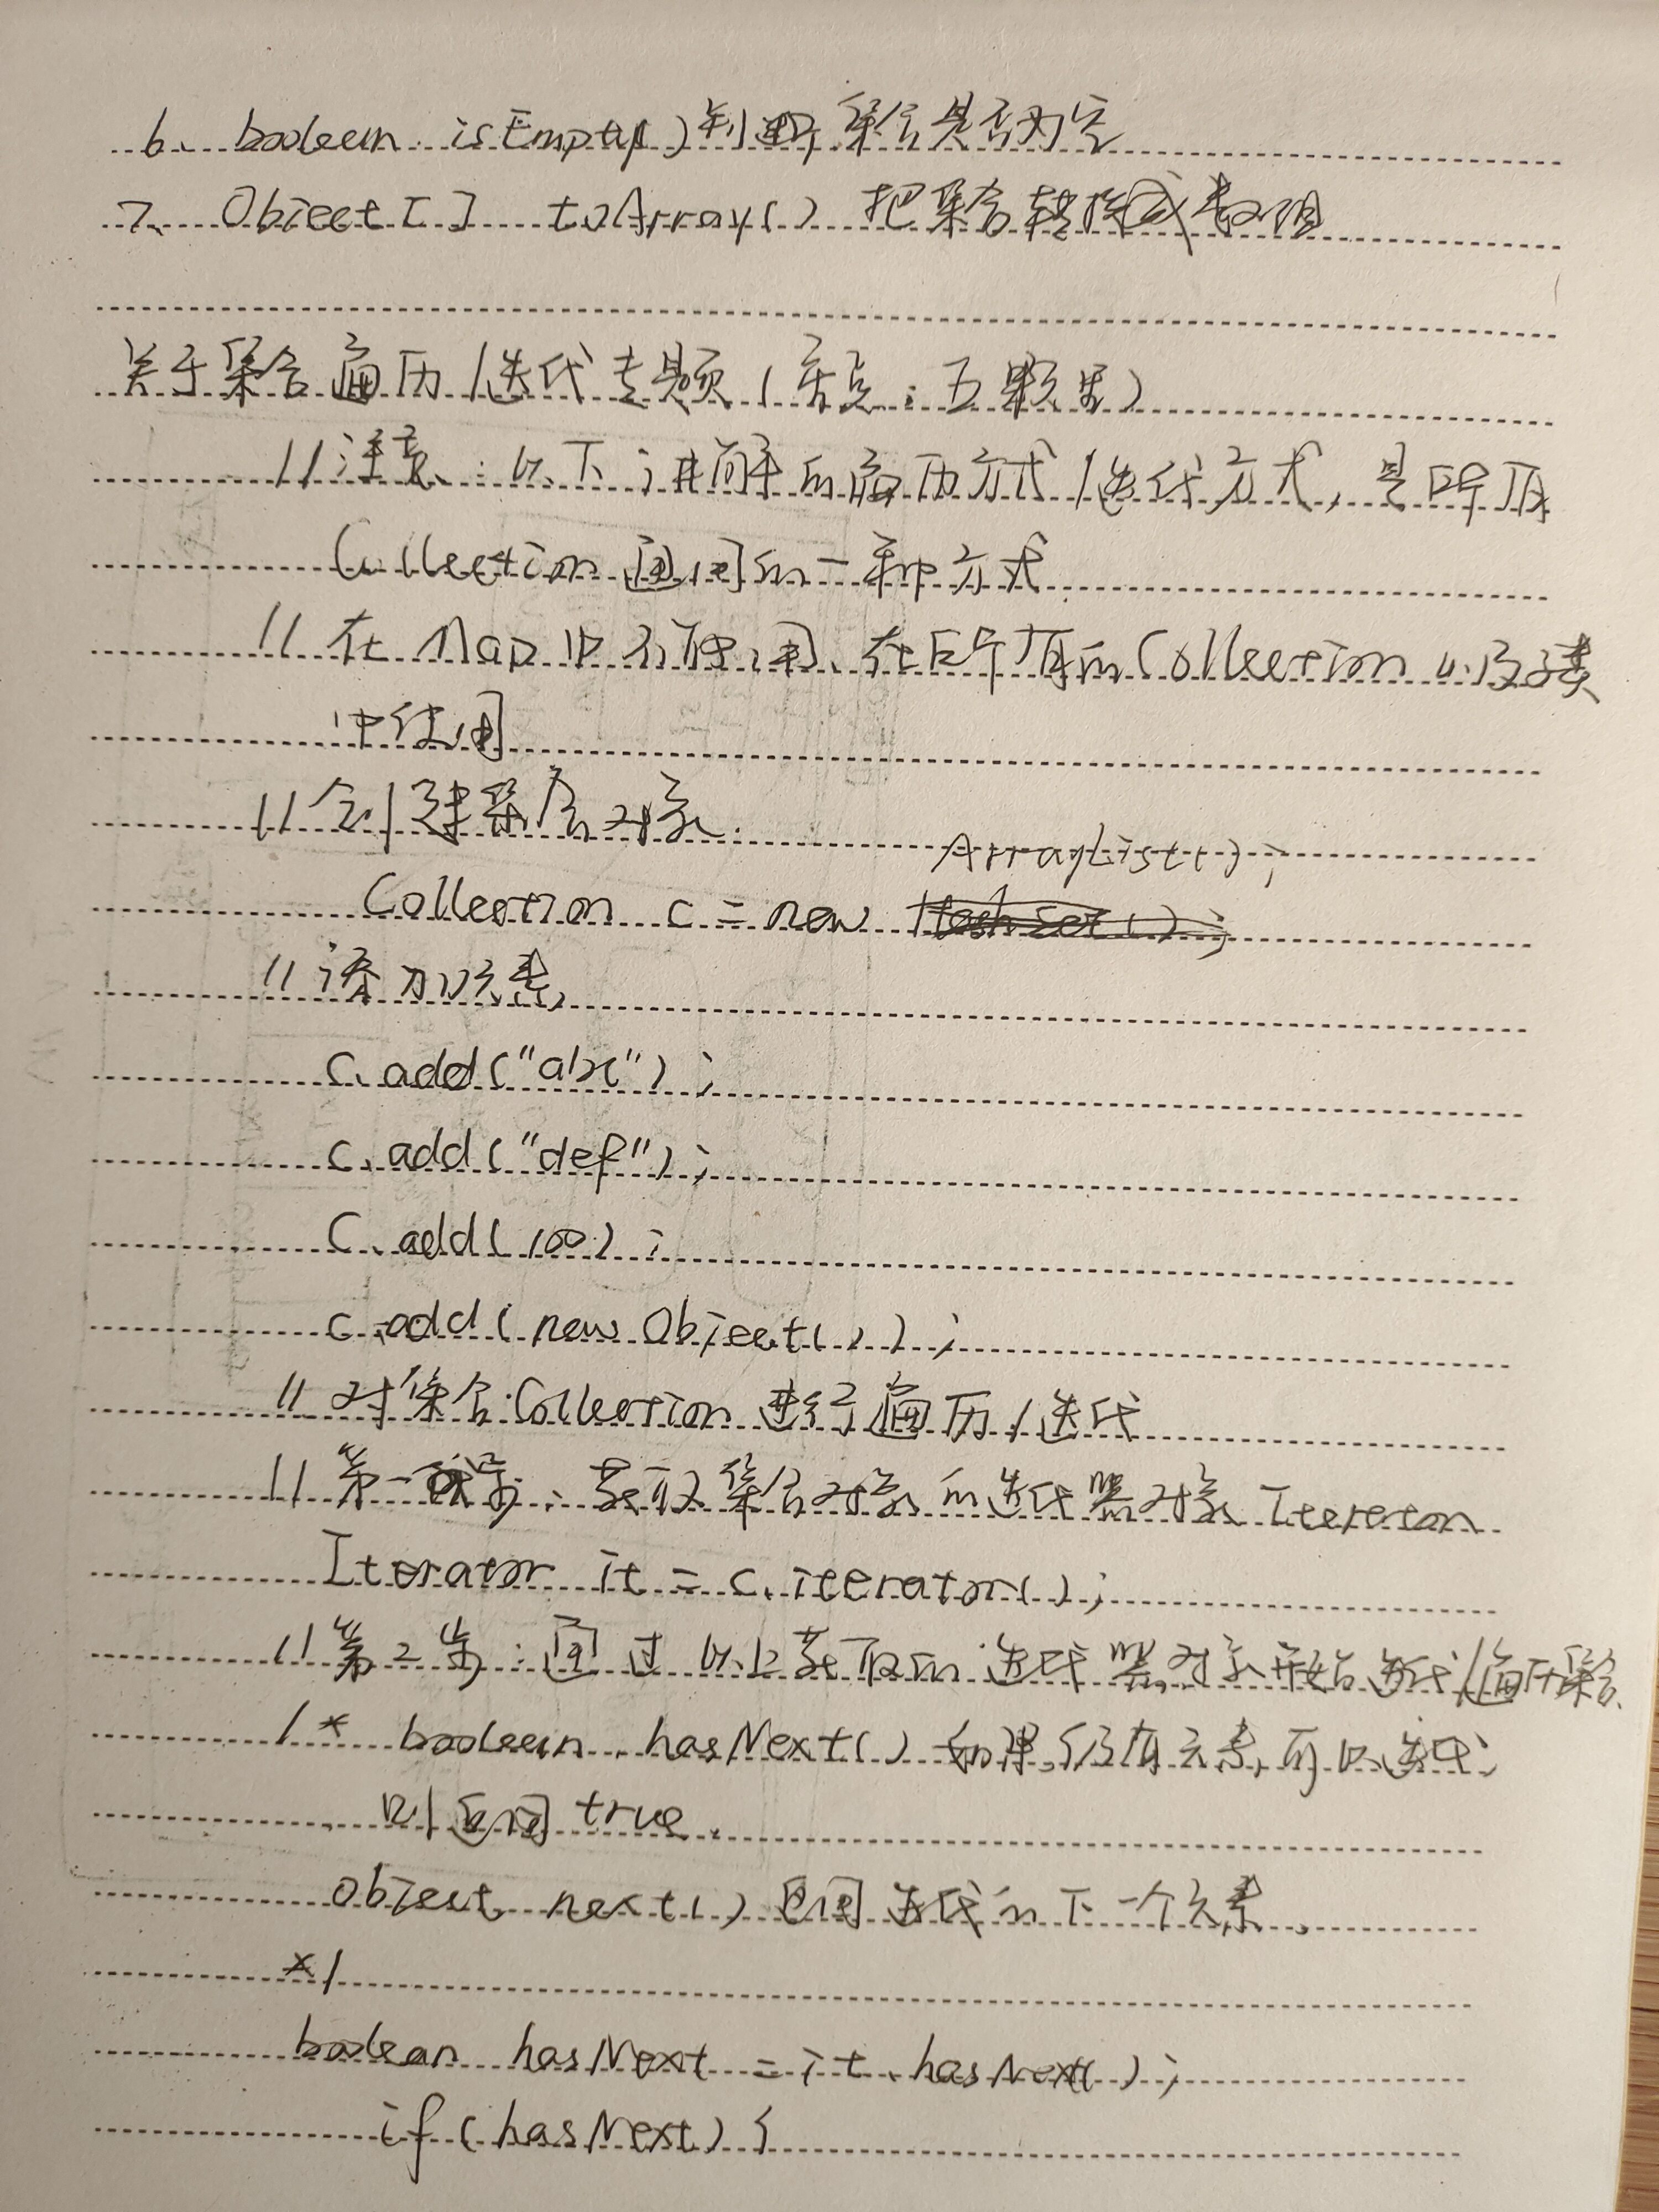 6、boolean isEmpty()判断集合是否为空
7、Object[] toArray() 把集合转换成数组
关于集合遍历/迭代专题(重点:五颗星)
//注意:以下讲解的遍历方式/迭代方式,是所有
Collection通用的一种方式
//在Map中不能用,在所有的Collection以及子类
中使用
//创建集合对象.
ArrayList();
Collection c = new HashSet();
//添加元素
c.add("abc");
c.add("def");
c.add(100);
c.add(new Object());
//对集合Collection进行遍历/迭代
//第一步:获取集合对象的迭代器对象Iterator
Iterator it = c.iterator();
//第2步:通过以上获取的迭代器对象开始迭代/遍历集合.
/* boolean hasNext() 如果仍有元素可以迭代,
则返回true.
Object next() 返回迭代的下一个元素.
*/
boolean hasNext = it.hasNext();
if(hasNext){